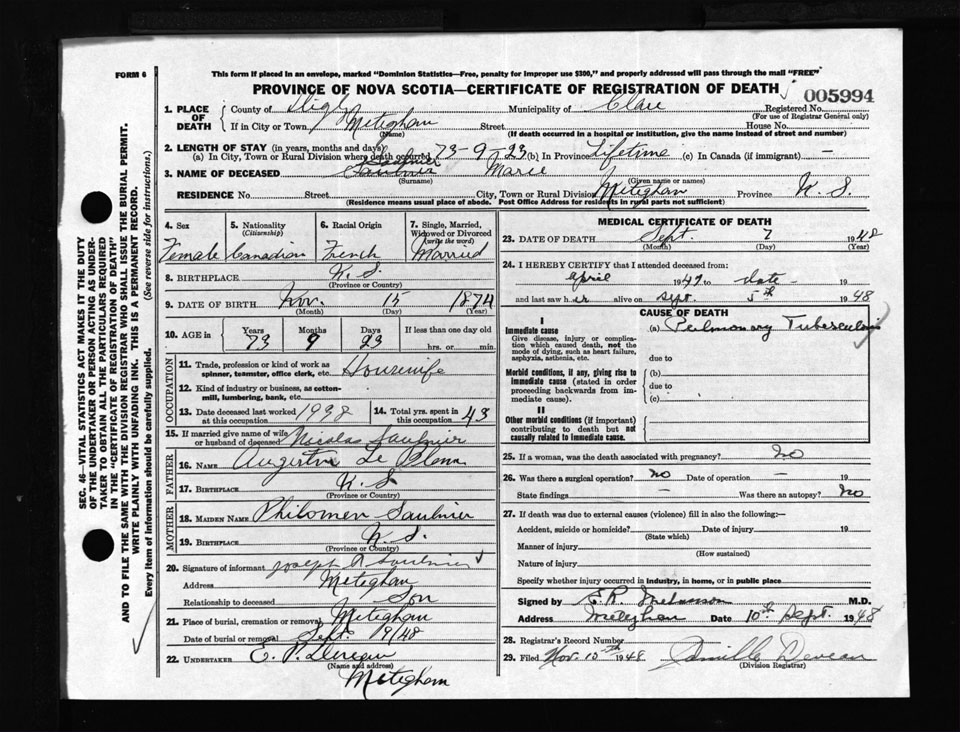 This form if placed in an envelope, marked "Dominion Statistics—Free, penalty for improper use $300," and properly addressed will pass through the mail "FREE"
FORM 6
PROVINCE OF NOVA SCOTIA—CERTIFICATE OF REGISTRATION OF DEATH
005994
1. PLACE OF DEATH
County of Digby Municipality of Clare Registered No.
(For use of Registrar General only)
If in City or Town Meteghan Street House No.
(Name) (If death occurred in a hospital or institution, give the name instead of street and number)
2. LENGTH OF STAY (in years, months and days)
(a) In City, Town or Rural Division where death occurred 73-9-23 (b) In Province Lifetime (c) In Canada (if immigrant) —
3. NAME OF DECEASED Saulnier Marie
(Surname) (Given name or names)
RESIDENCE No. Street City, Town or Rural Division Meteghan Province N. S.
(Residence means usual place of abode. Post Office Address for residents in rural parts not sufficient)
4. Sex
Female
5. Nationality
(Citizenship)
Canadian
6. Racial Origin
French
7. Single, Married, Widowed or Divorced
(write the word)
Married
8. BIRTHPLACE N. S.
(Province or Country)
9. DATE OF BIRTH Nov. 15 1874
(Month) (Day) (Year)
10. AGE in Years Months Days If less than one day old
73 9 23 hrs. or min.
OCCUPATION
11. Trade, profession or kind of work as spinner, teamster, office clerk, etc. Housewife
12. Kind of industry or business, as cotton-mill, lumbering, bank, etc.
13. Date deceased last worked at this occupation 1938
14. Total yrs. spent in this occupation 43
15. If married give name of wife or husband of deceased Nicolas Saulnier
FATHER
16. NAME Augustin Le Blanc
17. BIRTHPLACE N. S.
(Province or Country)
MOTHER
18. MAIDEN NAME Philomen Saulnier
19. BIRTHPLACE N. S.
(Province or Country)
20. Signature of informant Joseph A Saulnier
Address Meteghan
Relationship to deceased Son
21. Place of burial, cremation or removal Meteghan
Date of burial or removal Sept. 9/48
22. UNDERTAKER E. P. Deveau
(Name and address)
Meteghan
MEDICAL CERTIFICATE OF DEATH
23. DATE OF DEATH Sept. 7 1948
(Month) (Day) (Year)
24. I HEREBY CERTIFY that I attended deceased from:
April 1947 to date
and last saw her alive on Sept. 5th 1948
CAUSE OF DEATH
I
Immediate cause
Give disease, injury or complication which caused death, not the mode of dying, such as heart failure, asphyxia, asthenia, etc.
(a) Pulmonary Tuberculosis
due to
Morbid conditions, if any, giving rise to immediate cause (stated in order proceeding backwards from immediate cause).
(b)
due to
(c)
II
Other morbid conditions (if important) contributing to death but not causally related to immediate cause.
25. If a woman, was the death associated with pregnancy? No
26. Was there a surgical operation? No Date of operation — 19
State findings — Was there an autopsy? No
27. If death was due to external causes (violence) fill in also the following:—
Accident, suicide or homicide? Date of injury 19
(State which)
Manner of injury
(How sustained)
Nature of injury
Specify whether injury occurred in industry, in home, or in public place
Signed by E. R. M.D.
Meteghan Date 10th Sept. 1948
28. Registrar's Record Number
29. Filed Nov. 15th 1948 Camille Deveau
(Division Registrar)
SEC. 46—VITAL STATISTICS ACT MAKES IT THE DUTY
OF THE UNDERTAKER OR PERSON ACTING AS UNDER-
TAKER TO OBTAIN ALL THE PARTICULARS REQUIRED
IN THE "CERTIFICATE OF REGISTRATION OF DEATH"
AND TO FILE THE SAME WITH THE DIVISION REGISTRAR WHO SHALL ISSUE THE BURIAL PERMIT.
WRITE PLAINLY WITH UNFADING INK. THIS IS A PERMANENT RECORD.
Every item of information should be carefully supplied. (See reverse side for instructions.)